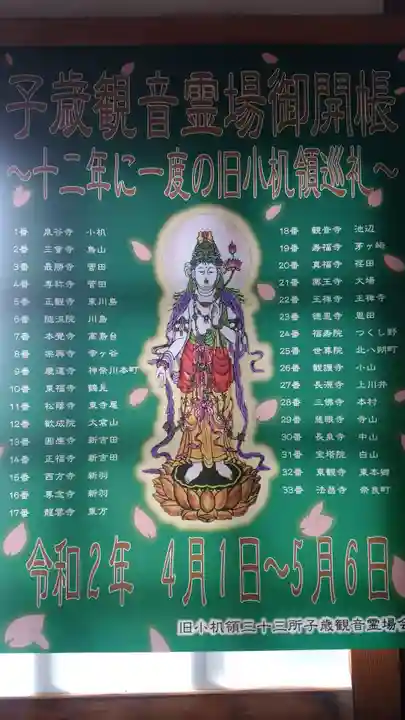 子歳観音霊場御開帳
～十二年に一度の旧小机領巡礼～
1番 泉谷寺 小机
2番 三會寺 鳥山
3番 最勝寺 菅田
4番 専称寺 菅田
5番 正観寺 東川島
6番 随流院 川島
7番 本覺寺 高島台
8番 宗興寺 幸ヶ谷
9番 慶運寺 神奈川本町
10番 東福寺 鶴見
11番 松蔭寺 東寺尾
12番 歓成院 大倉山
13番 圓應寺 新吉田
14番 正福寺 新吉田
15番 西方寺 新羽
16番 専念寺 新羽
17番 龍雲寺 東方
18番 観音寺 池辺
19番 寿福寺 茅ヶ崎
20番 真福寺 荏田
21番 薬王寺 大場
22番 王禅寺 王禅寺
23番 徳恩寺 恩田
24番 福寿院 つくし野
25番 世尊院 北八朔町
26番 観護寺 小山
27番 長源寺 上川井
28番 三佛寺 本村
29番 慈眼寺 寺山
30番 長泉寺 中山
31番 宝塔院 白山
32番 東観寺 東本郷
33番 法昌寺 奈良町
令和2年 4月1日～5月6日
旧小机領三十三所子歳観音霊場会